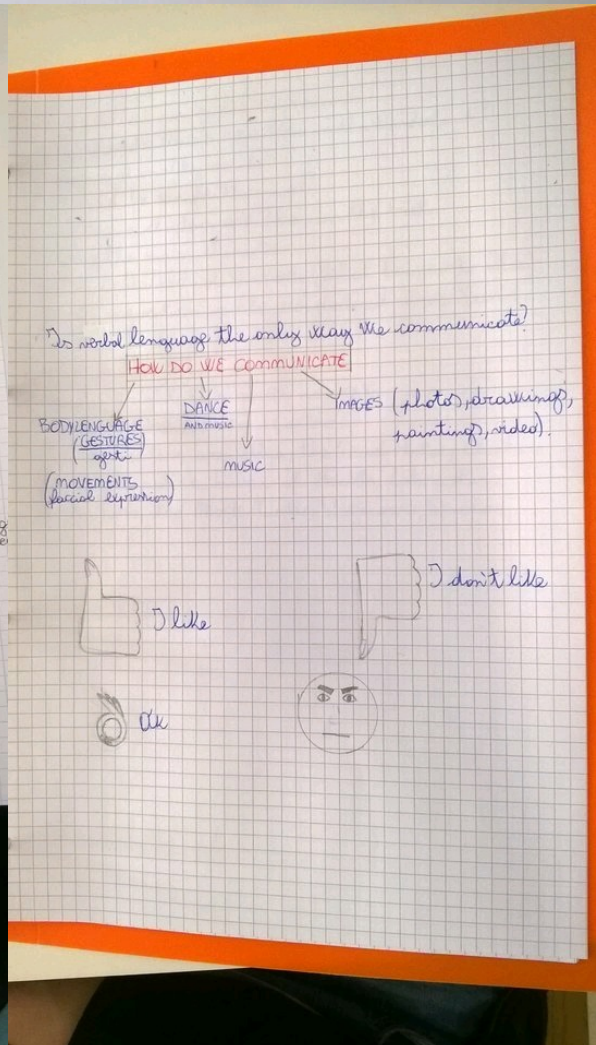 Is verbal lenguage the only way we communicate?
HOW DO WE COMMUNICATE
BODYLENGUAGE
(GESTURES)
gesti
(MOVEMENTS
faccial expression)
DANCE
AND MUSIC
MUSIC
IMAGES (photos, drawings,
paintings, video).
I like
I don't like
Ok